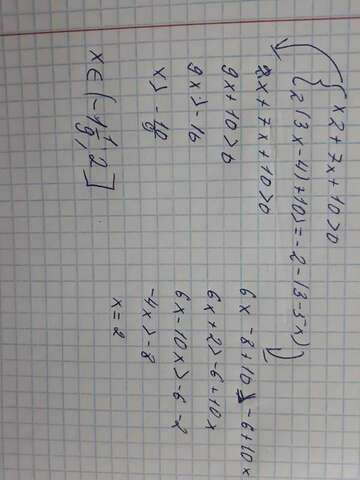 x2 + 7x + 10 > 0
2 (3x - 4) + 10 >= -2 - (3 - 5x)
2x + 7x + 10 > 0
9x + 10 > 0
9x > -10
x > -10/9
x ∈ (-1 1/9; 2]
6x - 8 + 10 > -6 + 10x
6x + 2 > -6 + 10x
6x - 10x > -6 - 2
-4x > -8
x = 2